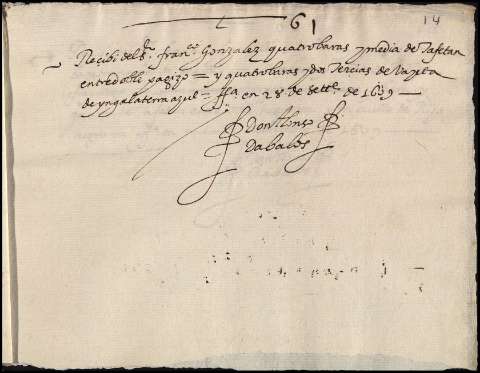 61
14
Recibi del Sr. franco Gonzalez quatro baras y media de Tafetan
entredoble pagizo = y quatro baras y dos Tercias de Vayeta
de yngalaterra azul = ffa en 28 de Setre. de 1639
Don Alonso
Dabalos